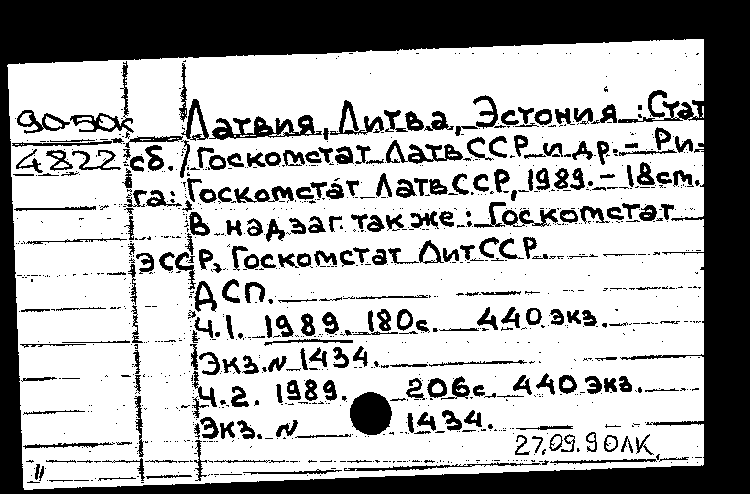 90-50к Латвия, Литва, Эстония : Стат
4822 сб. / Госкомстат ЛатвССР и др. - Ри-
га: Госкомстат ЛатвССР, 1989. - 18 ст.
В надзаг. также: Госкомстат
ЭССР, Госкомстат ЛитССР.
ДСП.
Ч.1. 1989. 180с. 440 экз.
Экз. N 1434.
Ч.2. 1989. 206с. 440 экз.
Экз. N 1434.
27.09.90ЛК